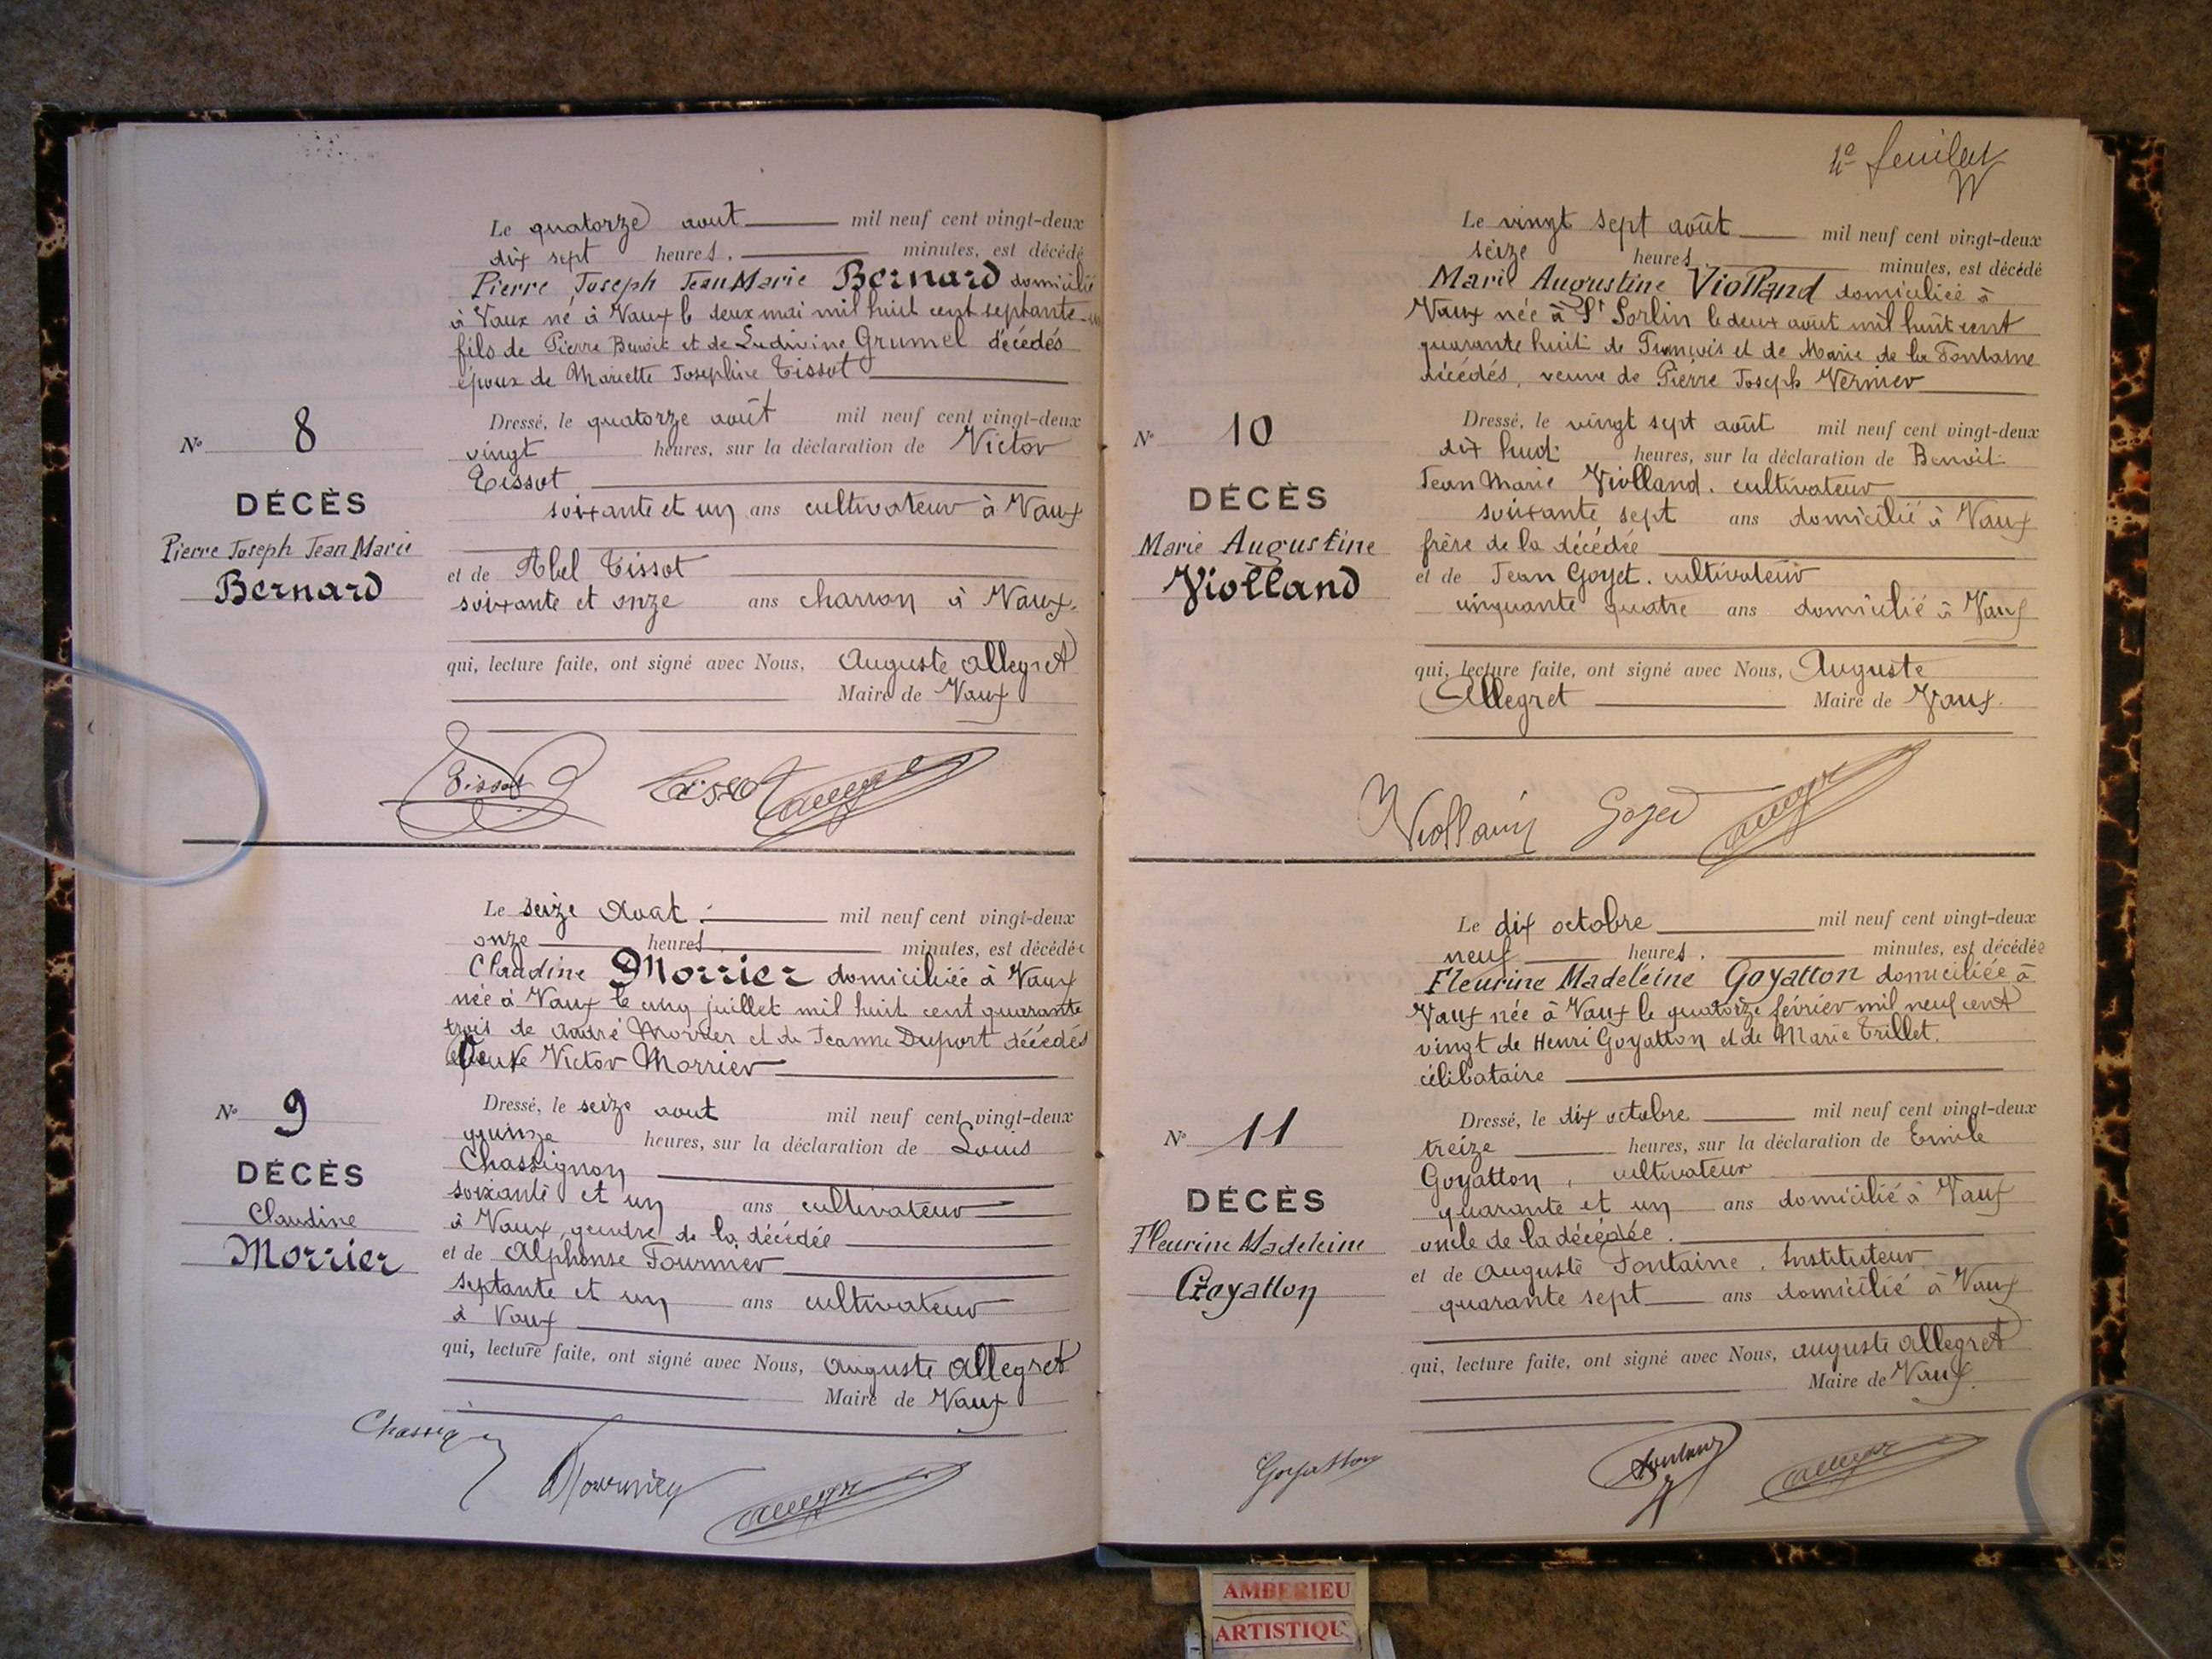 Le quatorze aout mil neuf cent vingt-deux
dix sept heures, minutes, est décédé
Pierre Joseph Jean Marie Bernard domicilié
à Vaux né à Vaux le deux mai mil huit cent septante-un
fils de Pierre Benoit et de Ludivine Grumel décédés
époux de Mariette Josephine Tissot
N° 8
DÉCÈS
Pierre Joseph Jean Marie
Bernard
Dressé, le quatorze août mil neuf cent vingt-deux
vingt heures, sur la déclaration de Victor
Tissot
soixante et un ans cultivateur à Vaux
et de Abel Tissot
soixante et onze ans charron à Vaux.
qui, lecture faite, ont signé avec Nous, Auguste Allegret
Maire de Vaux
Tissot Tissot
Le seize Aout mil neuf cent vingt-deux
onze heures minutes, est décédée
Claudine Morrier domiciliée à Vaux
née à Vaux le cinq juillet mil huit cent quarante
trois de André Morrier et de Jeanne Duport décédés
Veuve Victor Morrier
N° 9
DÉCÈS
Claudine
Morrier
Dressé, le seize aout mil neuf cent vingt-deux
quinze heures, sur la déclaration de Louis
Chassignon
soixante et un ans cultivateur
à Vaux, gendre de la décédée
et de Alphonse Fournier
septante et un ans cultivateur
à Vaux
qui, lecture faite, ont signé avec Nous, Auguste Allegret
Maire de Vaux
Fournier
4e feuillet
Le vingt sept août mil neuf cent vingt-deux
seize heures minutes, est décédé
Marie Augustine Violland domiciliée à
Vaux née à St Sorlin le deux août mil huit cent
quarante huit de François et de Marie de la Fontaine
décédés, veuve de Pierre Joseph Vernier
N° 10
DÉCÈS
Marie Augustine
Violland
Dressé, le vingt sept août mil neuf cent vingt-deux
dix huit heures, sur la déclaration de Benoit
Jean Marie Violland, cultivateur
soixante sept ans domicilié à Vaux
frère de la décédée
et de Jean Goyet, cultivateur
cinquante quatre ans domicilié à Vaux
qui, lecture faite, ont signé avec Nous, Auguste
Allegret Maire de Vaux.
Goyet
Le dix octobre mil neuf cent vingt-deux
neuf heures, minutes, est décédée
Fleurine Madeleine Goyatton domiciliée à
Vaux née à Vaux le quatorze février mil neuf cent
vingt de Henri Goyatton et de Marie Trillet.
célibataire
N° 11
DÉCÈS
Fleurine Madeleine
Goyatton
Dressé, le dix octobre mil neuf cent vingt-deux
treize heures, sur la déclaration de Emile
Goyatton, cultivateur
quarante et un ans domicilié à Vaux
oncle de la décédée.
et de Auguste Fontaine, Instituteur
quarante sept ans domicilié à Vaux
qui, lecture faite, ont signé avec Nous, Auguste Allegret
Maire de Vaux.
Goyatton Fontaine
AMBERIEU
ARTISTIQU